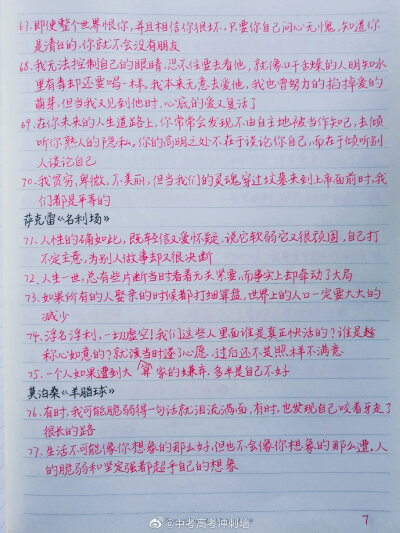 67.即使整个世界恨你,并且相信你很坏,只要你自己问心无愧,知道你
是清白的,你就不会没有朋友
68.我无法控制自己的眼睛,忍不住要去看他,就像口干舌燥的人明知水
里有毒却还要喝一样,我本来无意去爱他,我也曾努力的掐掉爱的
萌芽,但当我又见到他时,心底的爱又复活了
69.在你未来的人生道路上,你常常会发现不由自主地被当作知己,去倾
听你熟人的隐私,你的高明之处不在于谈论你自己,而在于倾听别
人谈论自己
70.我贫穷,卑微,不美丽,但当我们的灵魂穿过坟墓来到上帝面前时,我
们都是平等的
萨克雷《名利场》
71.人性的确如此,既轻信又爱怀疑,说它软弱它又很顽固,自己打
不定主意,为别人做事却又很决断
72.人生一世,总有些片断当时看着无关紧要,而事实上却牵动了大局
73.如果所有的人娶亲的时候都打细算盘,世界上的人口一定要大大的
减少
74.浮名浮利,一切虚空!我们这些人里面谁是真正快活的?谁是趁
称心如意的?就算当时遂了心愿,过后还不是照样不满意
75.一个人如果遭到大家的嫌弃,多半是自己不好
莫泊桑《羊脂球》
76.有时,我可能脆弱得一句话就泪流满面,有时,也发现自己咬着牙走了
很长的路
77.生活不可能像你想象的那么好,但也不会像你想象的那么遭,人
的脆弱和坚定强都超乎自己的想象
7
@中考高考冲刺墙